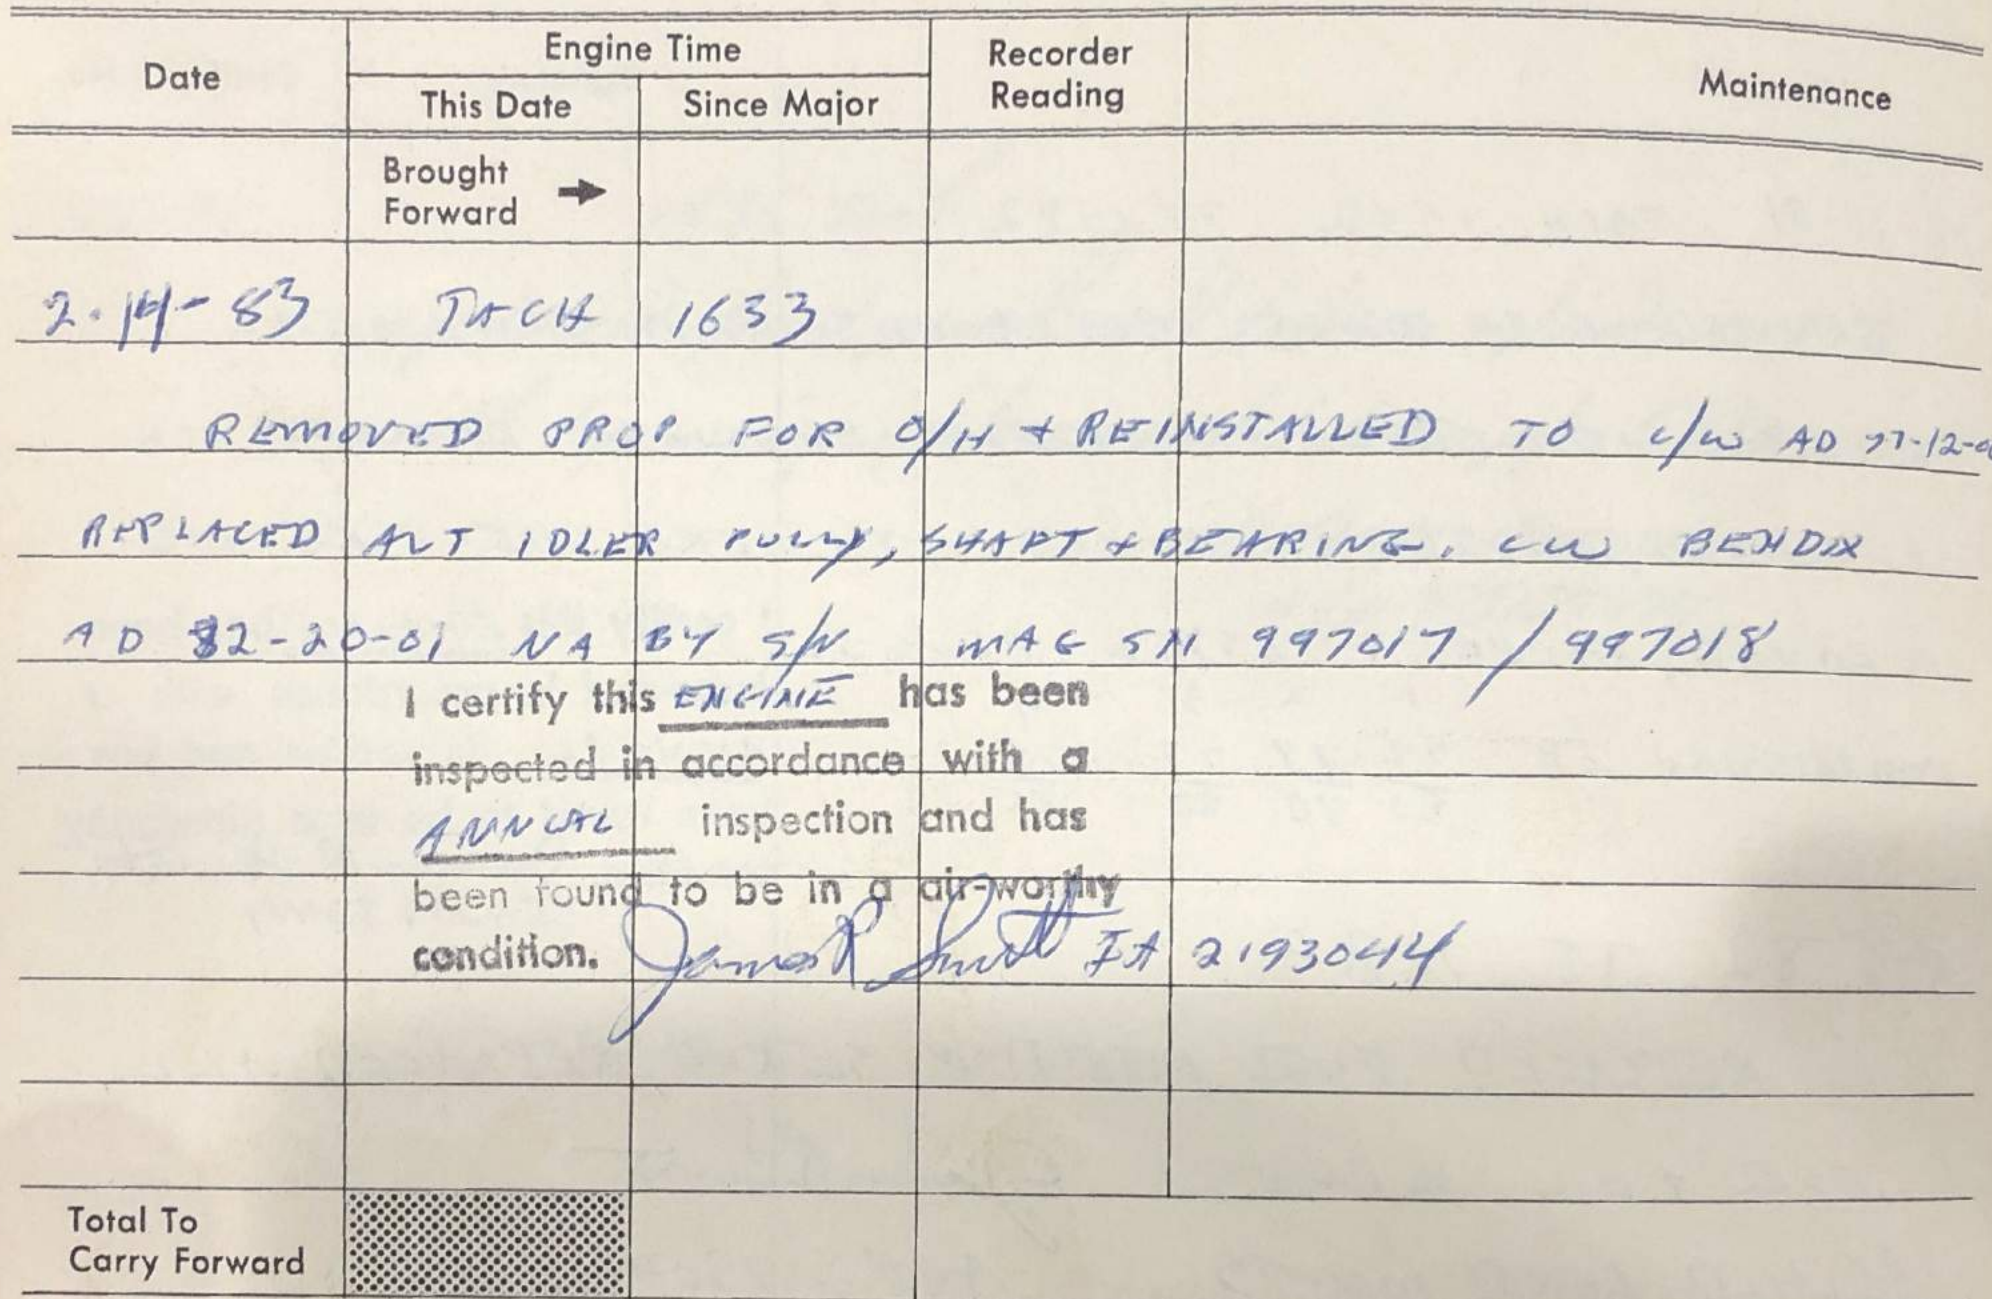 Date Engine Time Recorder Reading Maintenance
This Date Since Major
Brought Forward
2-14-83 TACH 1633
REMOVED PROP FOR O/H + REINSTALLED TO C/W AD 77-12-06
REPLACED ALT IDLER PULLY, SHAFT + BEARING. CW BENDIX
AD 82-20-01 NA BY S/N MAG SN 997017 / 997018
I certify this ENGINE has been
inspected in accordance with a
ANNUAL inspection and has
been found to be in a air-worthy
condition. James R Smith IA 2193044
Total To
Carry Forward